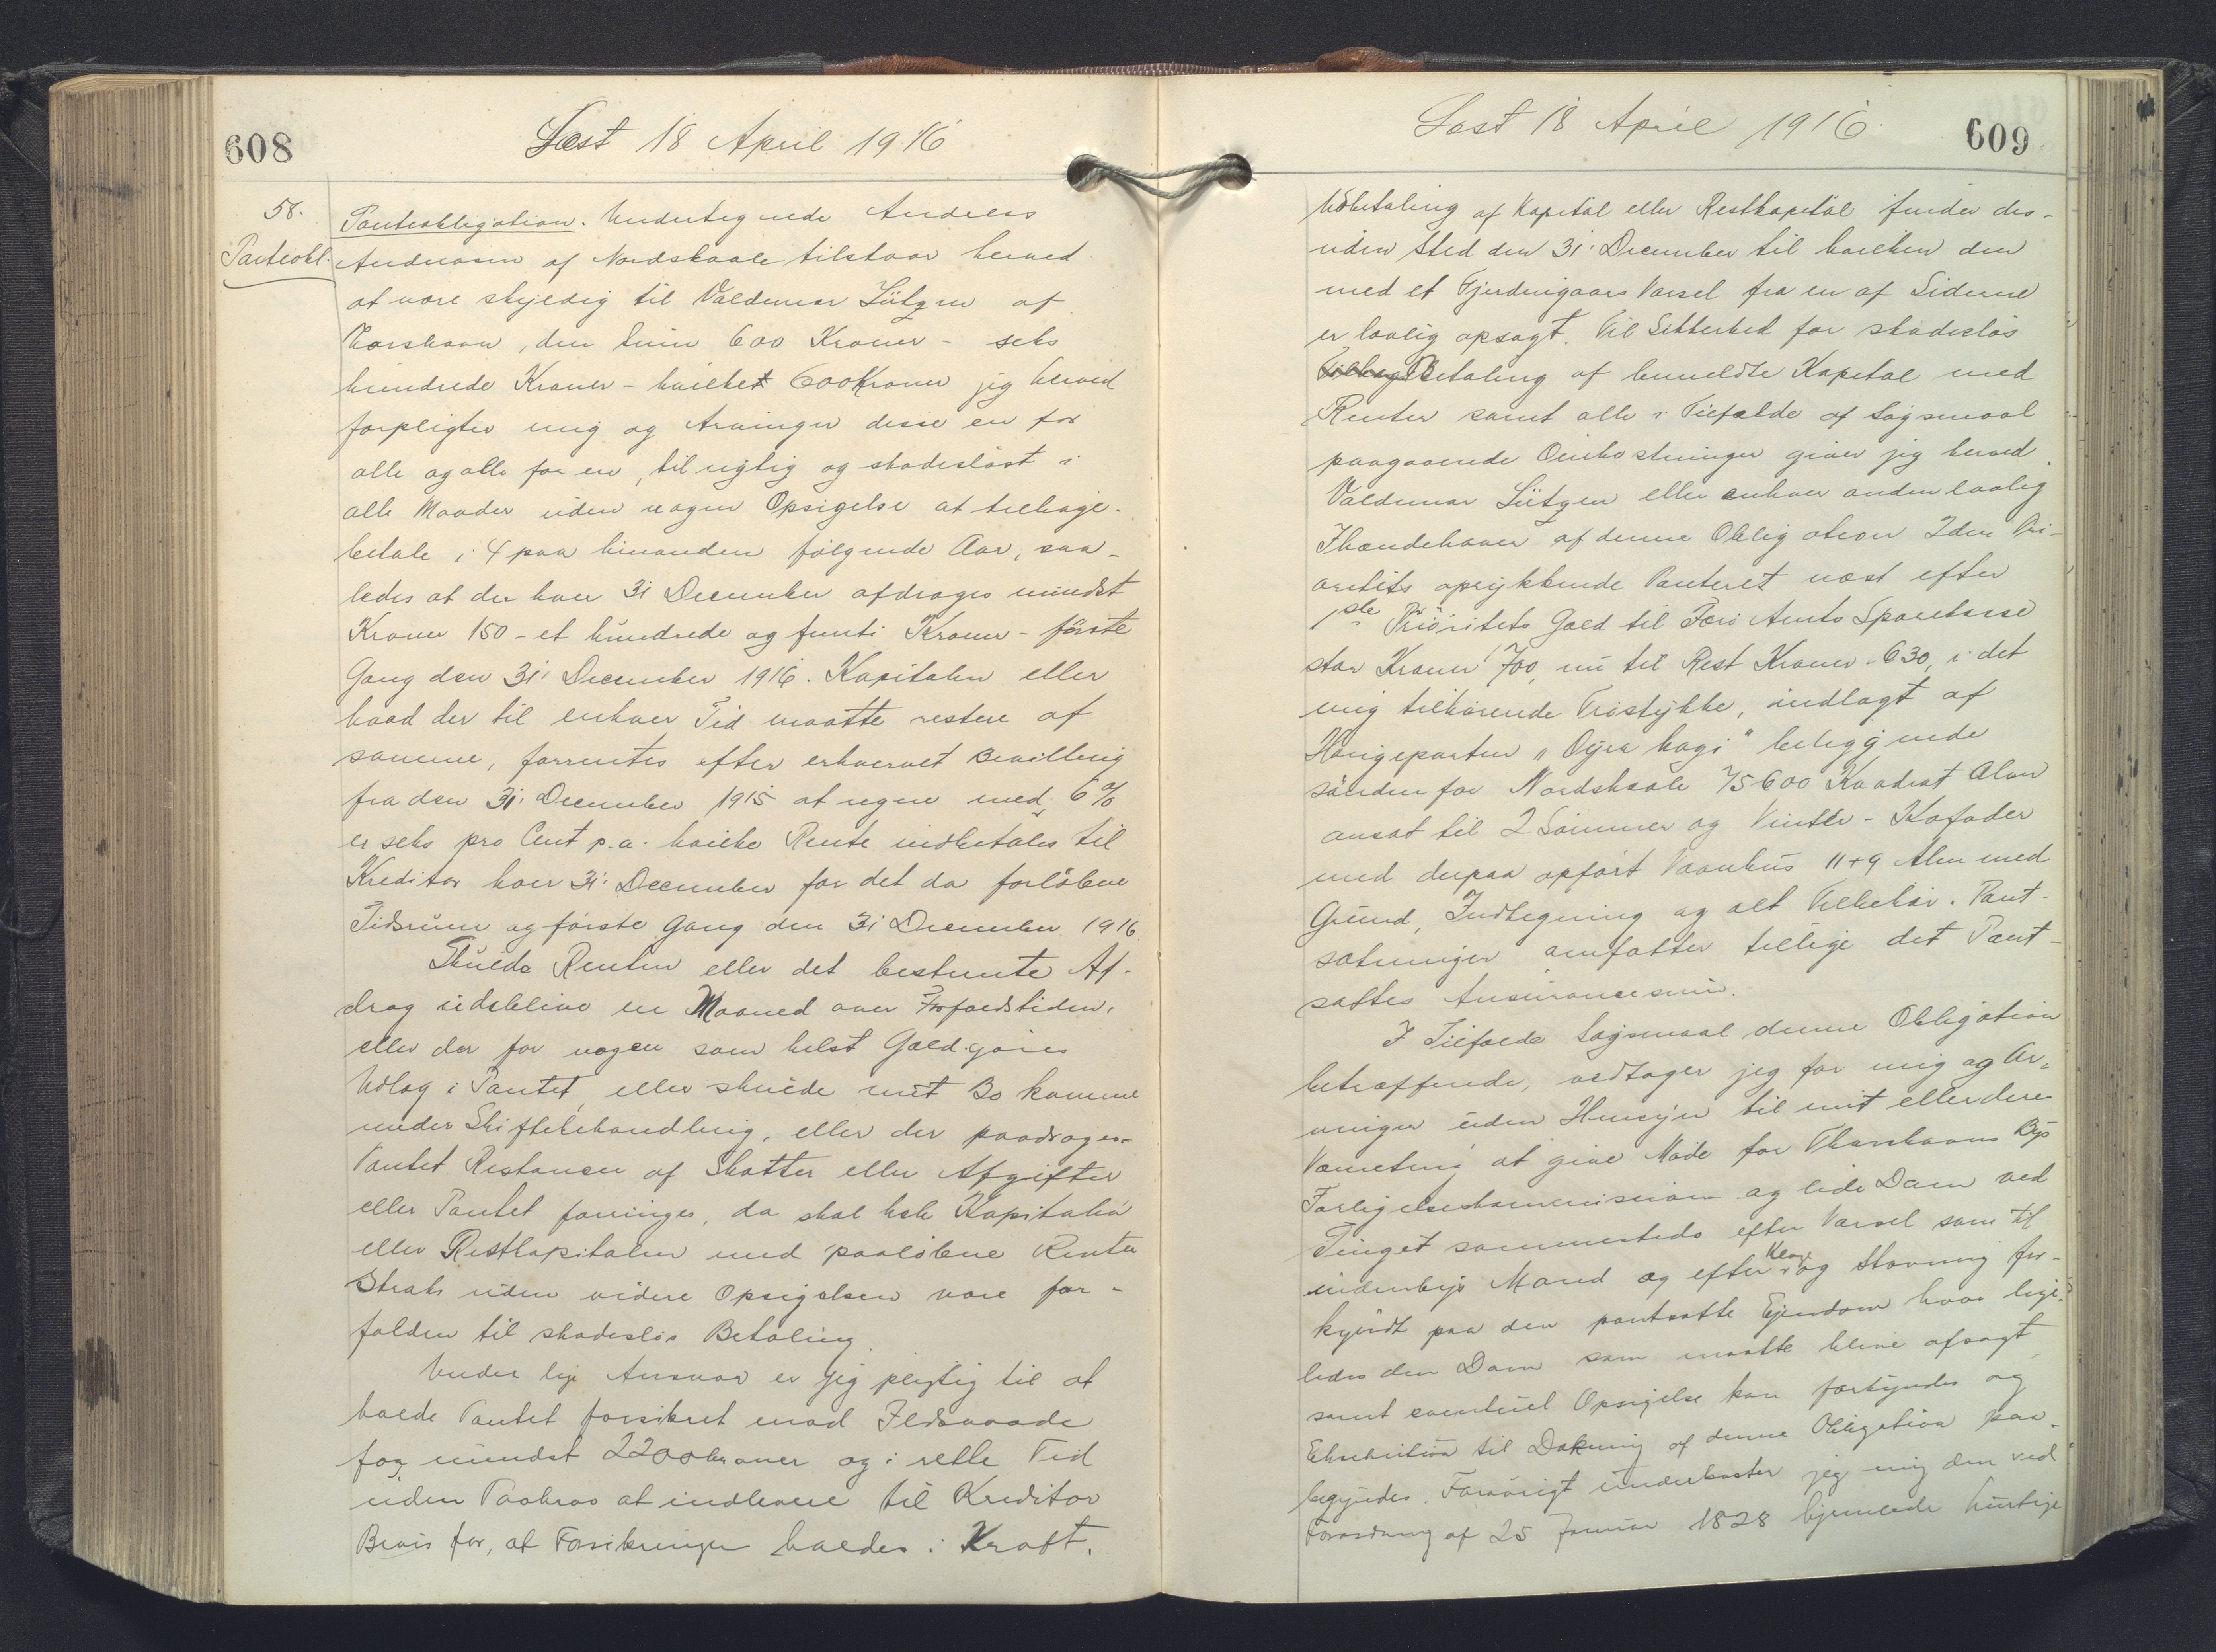 608
Læst 18 April 1916
58.
Panteobl.
Panteobligation. Undertegnede Andreas
Andreasen af Nordskaale tilstaar herved
at være skyldig til Valdemar Lützen af
Thorshavn, den Sum 600 Kroner - seks
hundrede Kroner - hvilket 600 Kroner jeg herved
forpligter mig og Arvinger disse en for
alle og alle for en, til rigtig og skadesløst i
alle Maader uden nogen Opsigelse at tilbage-
betale i 4 paa hinanden følgende Aar, saa-
ledes at der hver 31 December afdrages mindst
Kroner 150 - et hundrede og femti Kroner - første
Gang den 31' December 1916. Kapitalen eller
hvad der til enhver Tid maatte restere af
samme, forrentes efter erhvervet Bevilling
fra den 31' December 1915 at regne med 6 %
er seks pro Cent p.a. hvilke Rente indbetales til
Kreditor hver 31' December for det da forløbne
Tidsrum og første Gang den 31 December 1916.
Skulde Renten eller det bestemte Af-
drag udeblive en Maaned over Forfaldstiden,
eller der for nogen som helst Gæld gøres
Udlæg i Pantet, eller skulde mit Bo komme
under Skiftebehandling, eller der paadrages
Pantet Restancer af Skatter eller Afgifter
eller Pantet forringes, da skal hele Kapitalen
eller Restkapitalen med paaløbne Renter
straks uden videre Opsigelsen være for-
falden til skadesløs Betaling
Under lige Ansvar er jeg pligtig til at
holde Pantet forsikret mod Ildsvaade
for mindst 2200 kroner og i rette Tid
uden Paakrav at indlevere til Kreditor
Bevis for, at Forsikringen holdes i Kraft.
609
Læst 18 April 1916
Udbetaling af Kapital eller Restkapital finder des-
uden Sted den 31' December til hvilken den
med et Fjerdingaars Varsel fra en af Siderne
er lovlig opsagt. Til Sikkerhed for skadesløs
Betaling af bemeldte Kapital med
Renter samt alle i Tilfælde af Søgsmaal
paagaaende Omkostninger giver jeg herved
Valdemar Lützen eller enhver anden lovlig
Ihændehaver af denne Obligation 2den Pri-
oritets oprykkende Panteret næst efter
1ste Prioritets Gæld til Færø Amts Sparekasse
stor Kroner 700, nu til Rest Kroner 630, i det
mig tilhørende Trøstykke, indlagt af
Haugeparten "Oyra hagi" beliggende
sønden for Nordskaale 75600 Kvadrat Alen
ansat til 2 Sommer og Vinter - Kofoder
med derpaa opført Vaanhus 11 + 9 Alen med
Grund, Indhegning og alt Tilbehør. Pant-
sætninger omfatter tillige det Pant-
sattes Assurancesum.
I Tilfælde Søgsmaal denne Obligation
betræffende, vedtager jeg for mig og Ar-
vinger uden Hensyn til mit eller deres
Værneting at give Møde for Thorshavns Bys
Forligelseskommission og lide Dom ved
Tinget sammesteds efter Varsel som til
indenbys Mand og efter Klage og Stævning for-
kyndt paa den pantsatte Ejendom hvor lige-
ledes den Dom som maatte blive afsagt
samt eventuel Opsigelse kan forkyndes og
Eksekution til Dækning af denne Obligation paa-
begyndes. Forøvrigt underkaster jeg mig den ved
Forordning af 25 Januar 1828 hjemlede hurtige